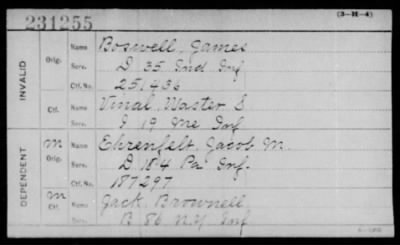 (3-H-4)
231255
INVALID
Orig. Name Boswell, James
Serv. D 35 Ind Inf
Ctf. No. 251436
Ctf. Name Vinal, Waster S
Serv. I 19 Me Inf
DEPENDENT
M Orig. Name Ehrenfelt, Jacob M.
Serv. D 184 Pa Inf.
Ctf. No. 187297
M Ctf. Name Jack, Brownell
Serv. B 86 N.Y Inf